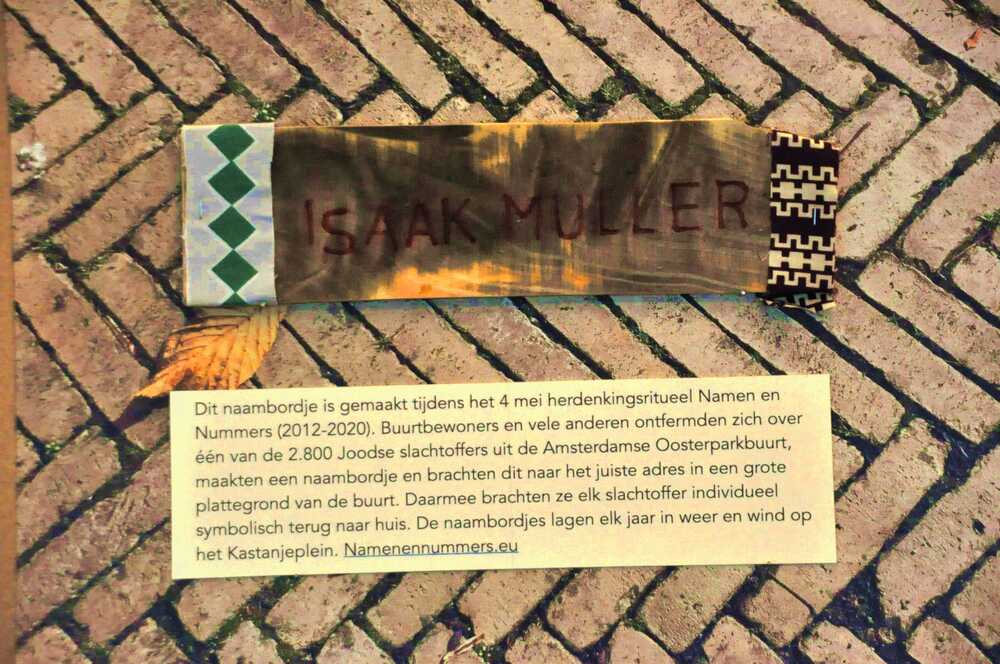 ISAAK MULLER
Dit naambordje is gemaakt tijdens het 4 mei herdenkingsritueel Namen en
Nummers (2012-2020). Buurtbewoners en vele anderen ontfermden zich over
één van de 2.800 Joodse slachtoffers uit de Amsterdamse Oosterparkbuurt,
maakten een naambordje en brachten dit naar het juiste adres in een grote
plattegrond van de buurt. Daarmee brachten ze elk slachtoffer individueel
symbolisch terug naar huis. De naambordjes lagen elk jaar in weer en wind op
het Kastanjeplein. Namenennummers.eu